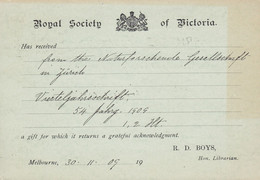 Royal Society of Victoria.
Has received
from the Naturforschende Gesellschaft
in Zürich
Vierteljahrsschrift.
54 Jahrg 1909
1, 2 Hft
a gift for which it returns a grateful acknowledgment.
R. D. BOYS,
Hon. Librarian.
Melbourne, 30. 11. 09 19